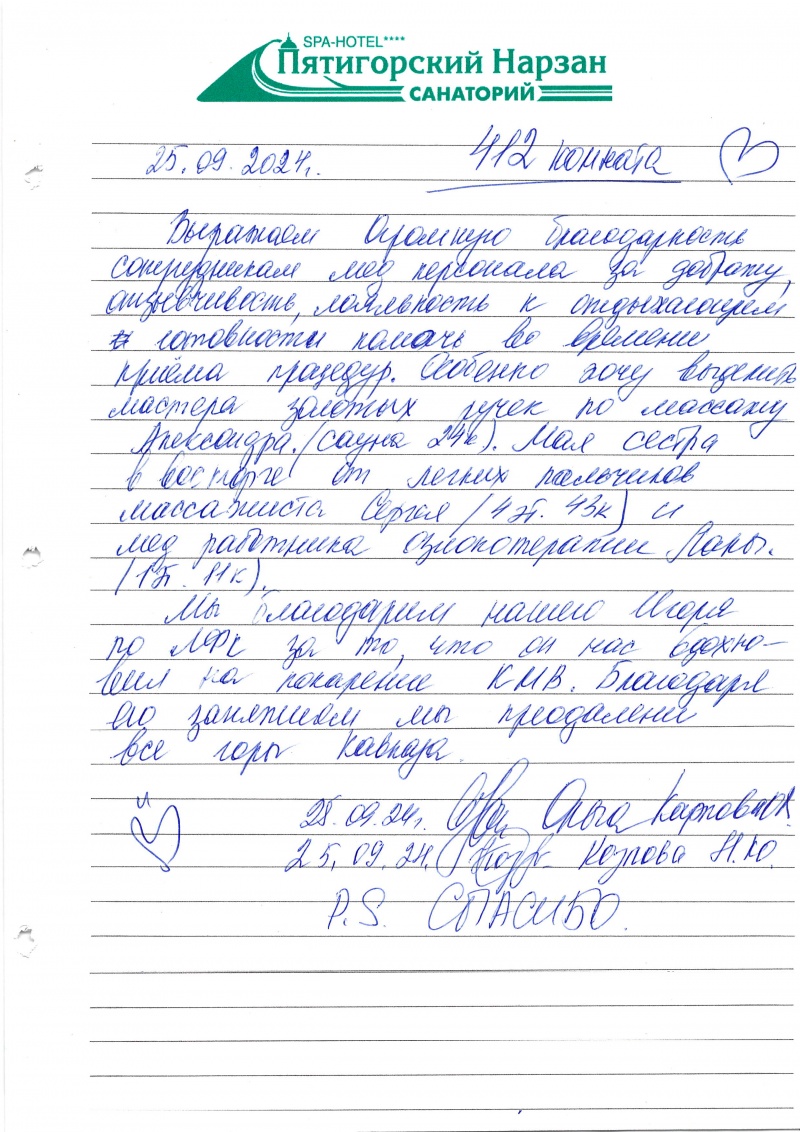 SPA-HOTEL****
Пятигорский Нарзан
САНАТОРИЙ
25.09.2024г. 412 комната
Выражаем Огромную благодарность
сотрудникам мед персонала за доброту,
отзывчивость, лояльность к отдыхающим
готовности помочь во времени
приёма процедур. Особенно хочу выделить
мастера золотых ручек по массажу
Александра. (сауна 24к). Моя сестра
в восторге от легких пальчиков
массажиста Сергея (4 эт. 43к) и
мед работника озонотерапии
(1эт. 11к).
Мы благодарим нашего Игоря
по ЛФК за то, что он нас вдохно-
вил на покарение КМВ. Благодаря
его занятием мы преодалели
все горы Кавказа.
25.09.24г. Ольга
25.09.24. Козлова Н.Ю.
P.S. СПАСИБО.